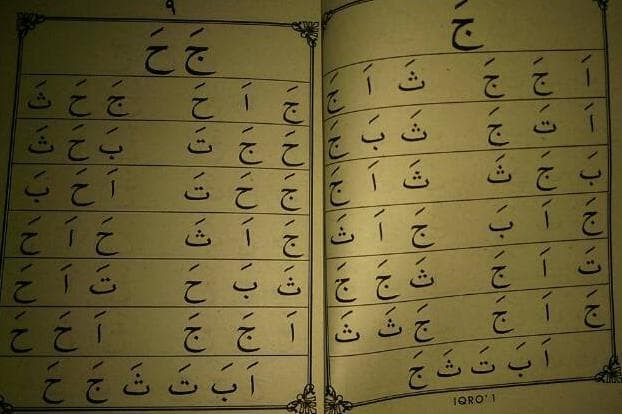 جَ
اَ جَ جَ ثَ اَ جَ
اَ تَ جَ ثَ بَ جَ
بَ جَ ثَ ثَ اَ جَ
جَ اَ بَ جَ اَ ثَ
تَ اَ جَ ثَ جَ جَ
جَ اَ جَ جَ ثَ ثَ
اَ بَ تَ ثَ جَ
IQRO' 1
٩
جَ حَ
جَ اَ حَ جَ حَ ثَ
حَ جَ تَ بَ حَ ثَ
جَ حَ تَ اَ حَ بَ
جَ اَ ثَ حَ اَ حَ
ثَ بَ حَ تَ اَ حَ
اَ جَ جَ اَ حَ حَ
اَ بَ تَ ثَ جَ حَ